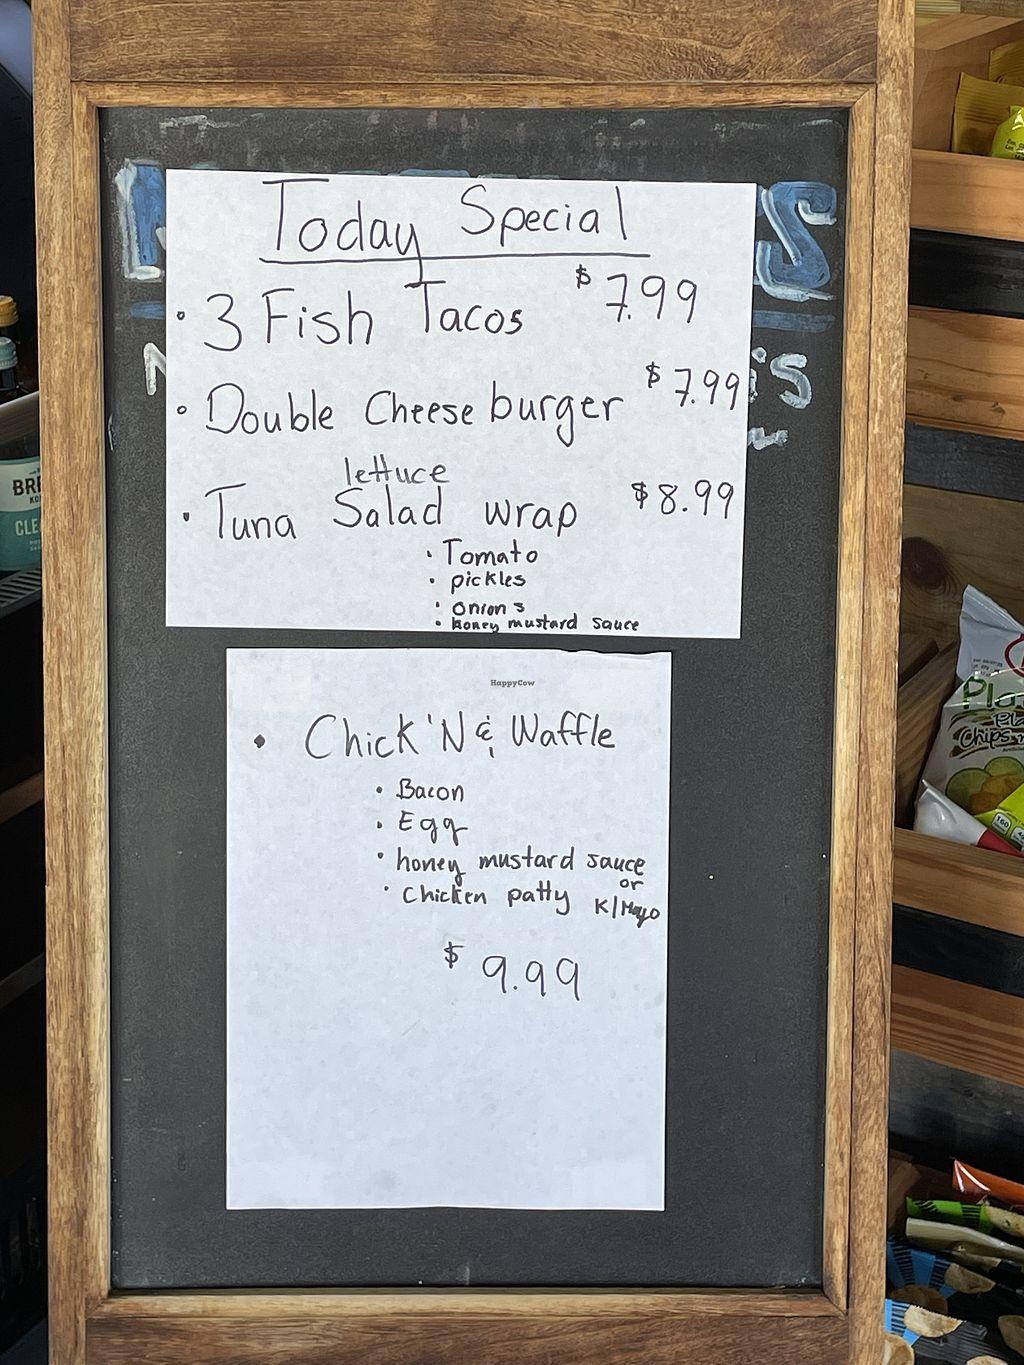 Today Special
• 3 Fish Tacos $7.99
• Double Cheese burger $7.99
lettuce
• Tuna Salad wrap $8.99
• Tomato
• pickles
• onions
• honey mustard sauce
HappyCow
• Chick 'N & Waffle
• Bacon
• Egg
• honey mustard sauce
or
• Chicken patty K/Mayo
$ 9.99
S
's
BRE
CLE
Pla
Pla
Chips